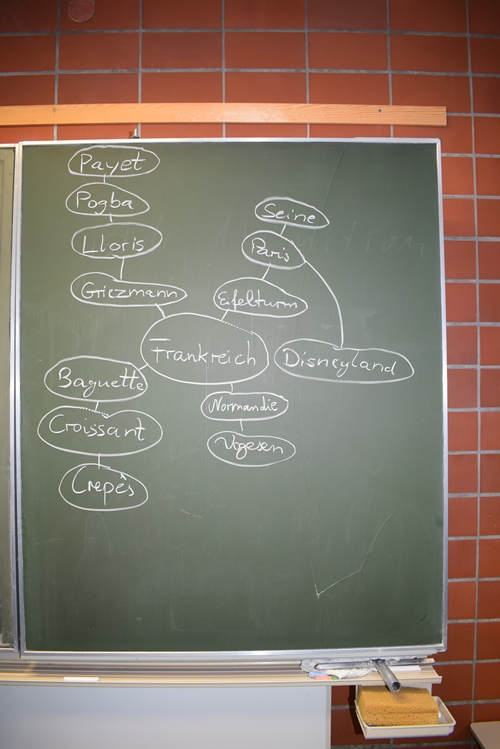 Payet
Pogba
Lloris
Griezmann
Seine
Paris
Eifelturm
Frankreich
Disneyland
Baguette
Croissant
Crepês
Normandie
Vogesen